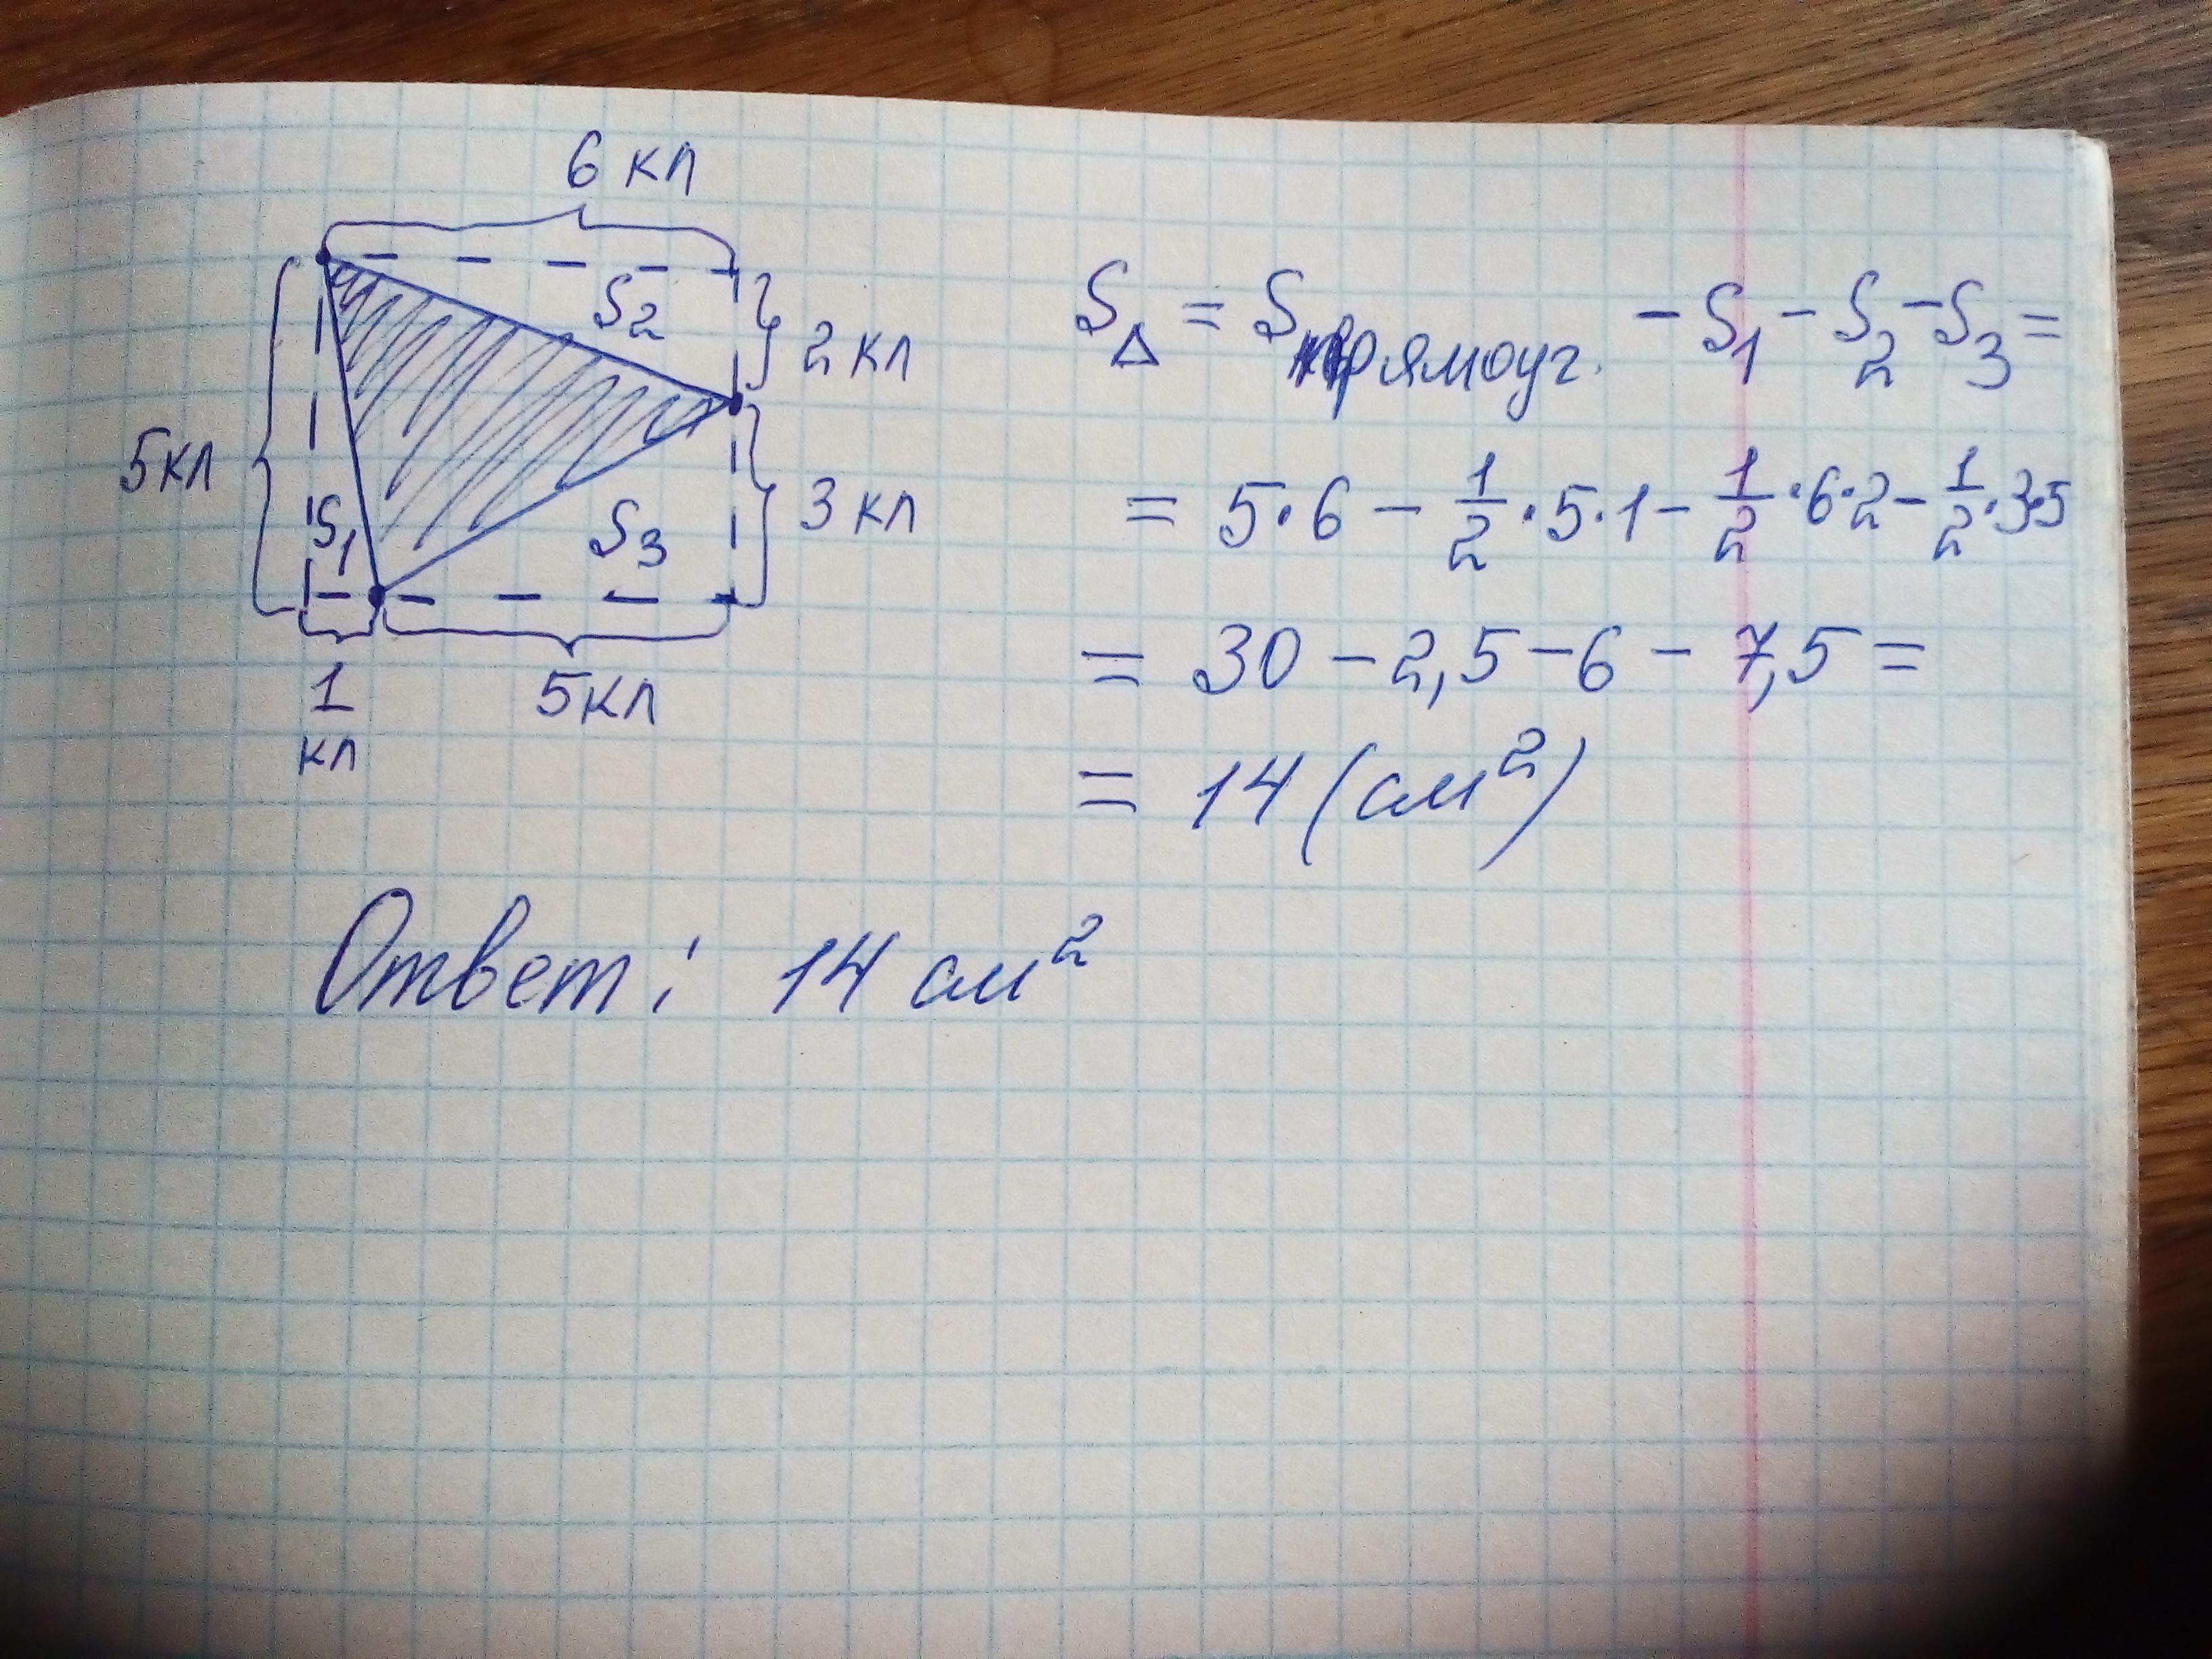 6 кл
S2
2 кл
5кл
S1
S3
3 кл
1 кл
5кл
S△ = Sпрямоуг. - S1 - S2 - S3 =
= 5·6 - 1/2 ·5·1 - 1/2 ·6·2 - 1/2 ·3·5
= 30 - 2,5 - 6 - 7,5 =
= 14 (см²)
Ответ: 14 см²